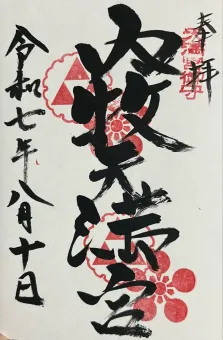 奉拝
牧天満宮
令和七年八月十日